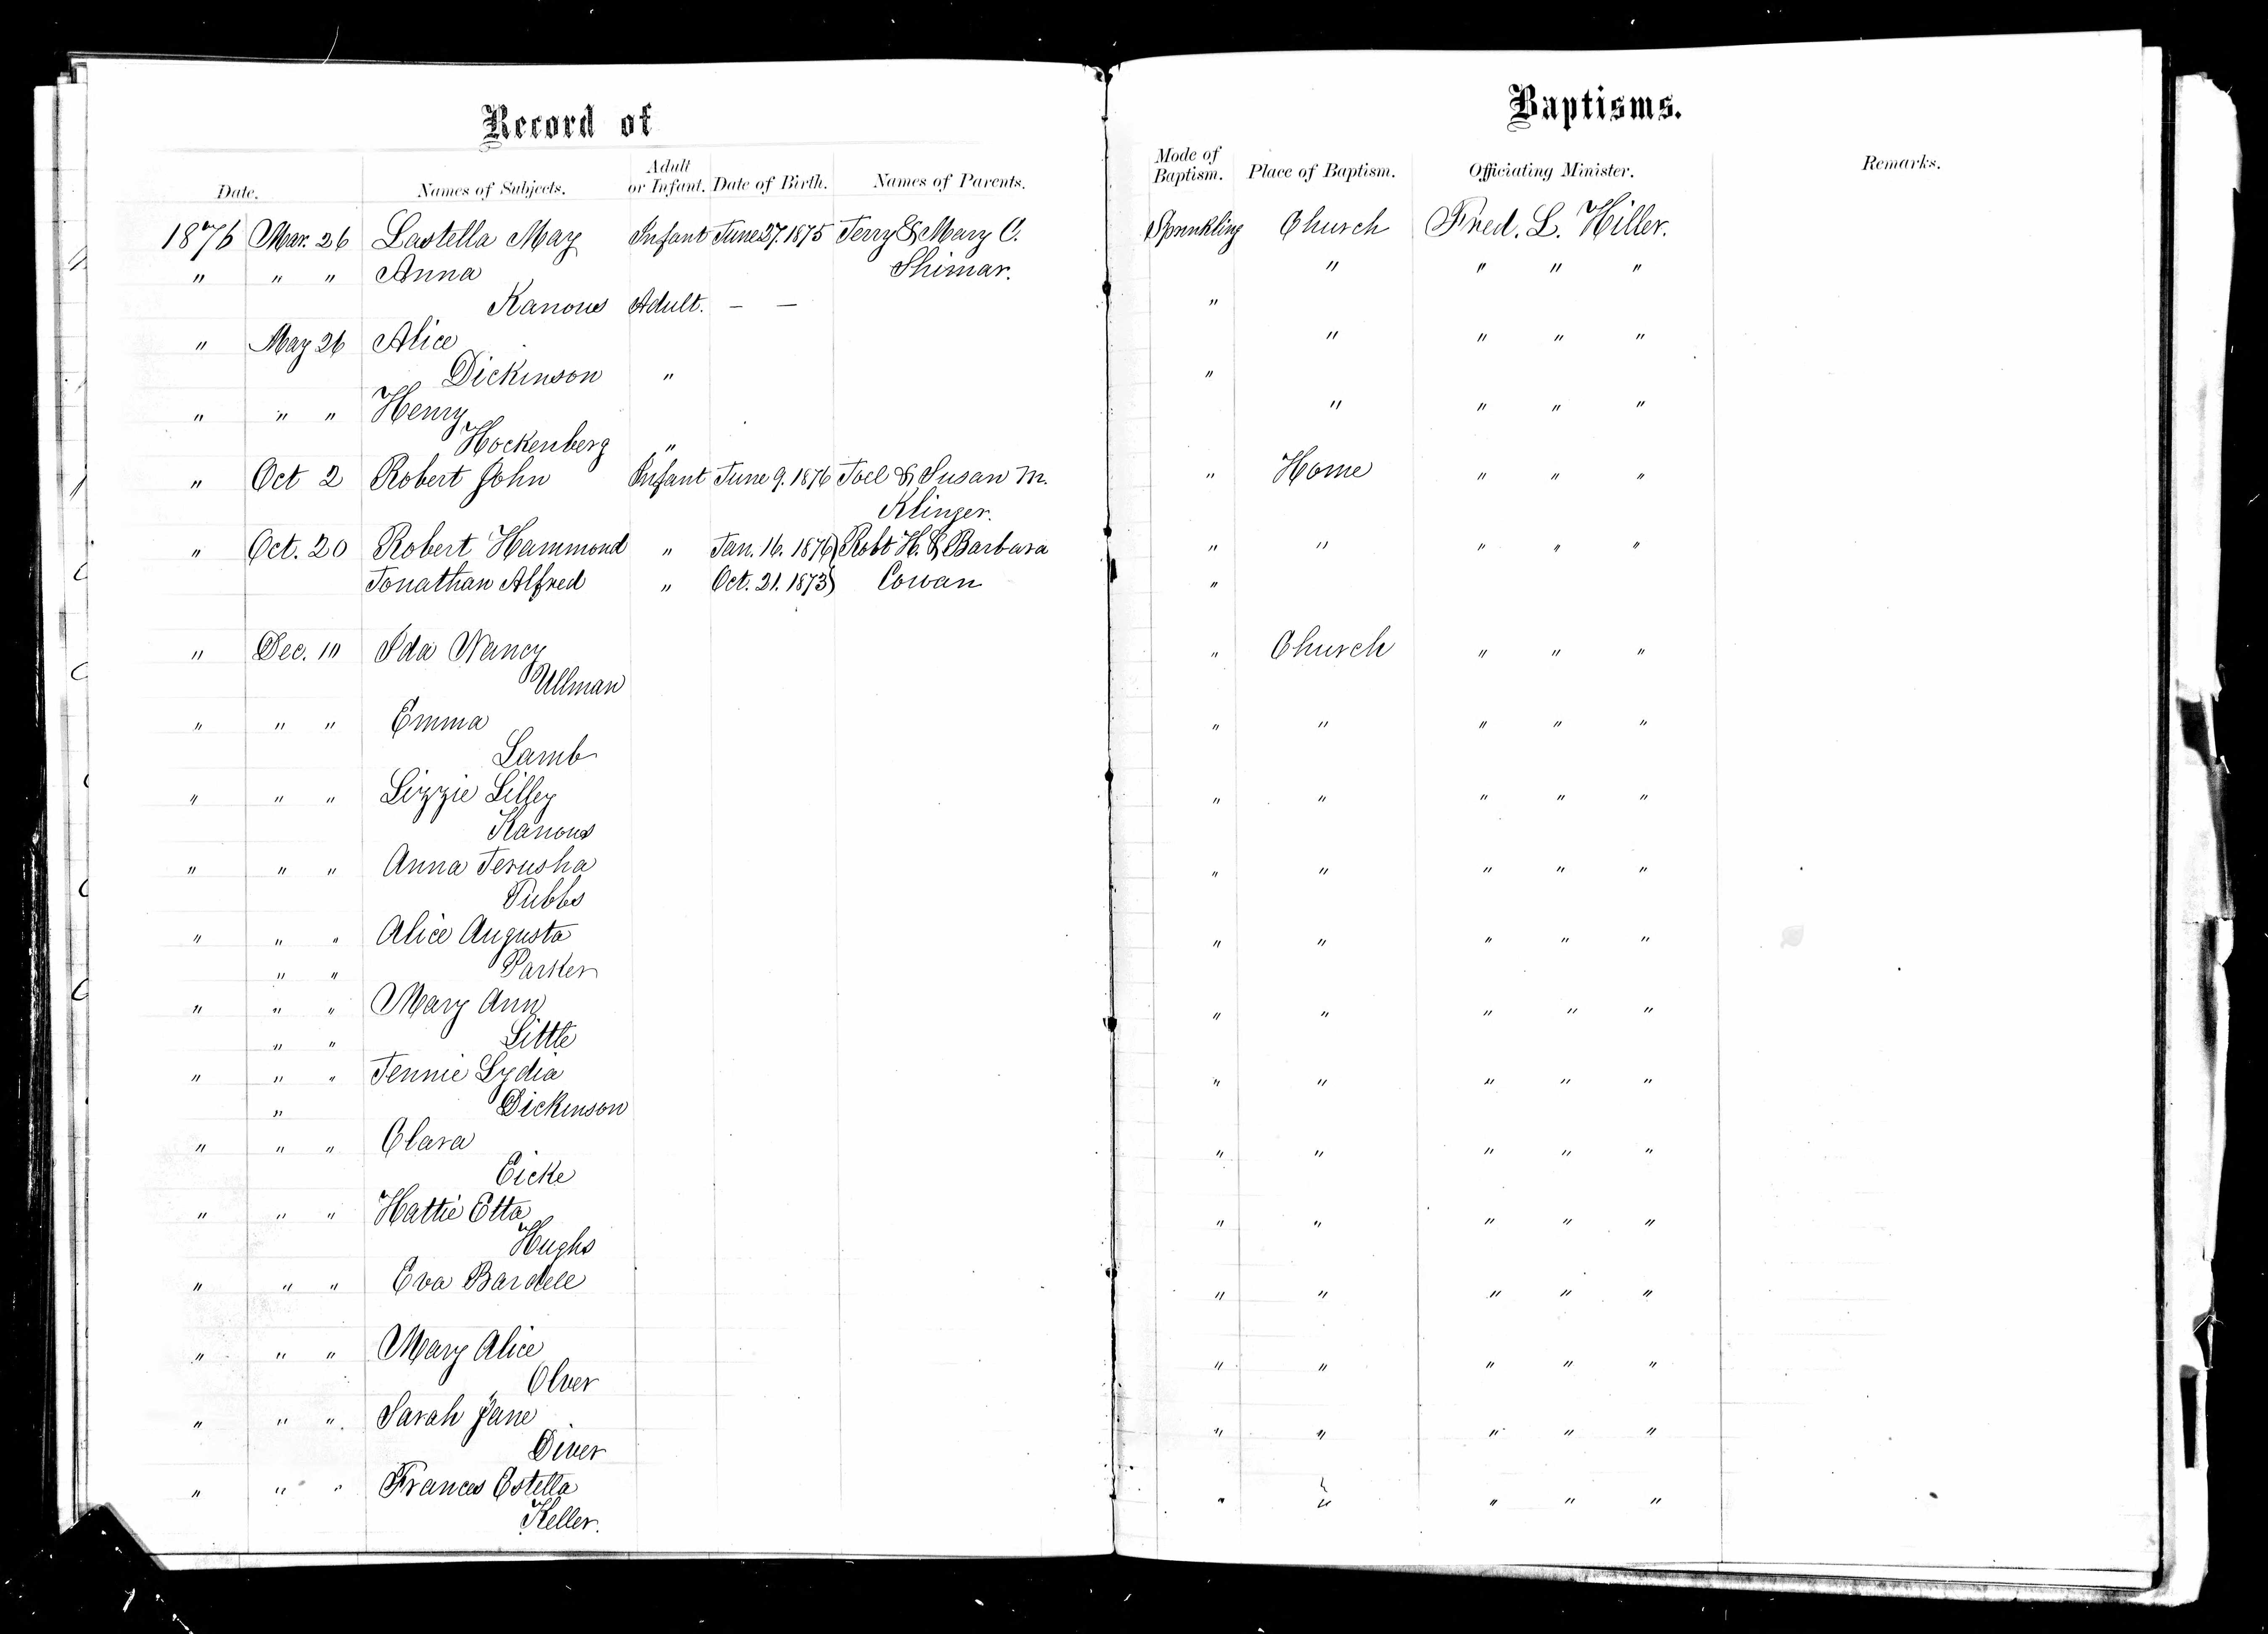 Record of Baptisms.
Date. Names of Subjects. Adult or Infant. Date of Birth. Names of Parents. Mode of Baptism. Place of Baptism. Officiating Minister. Remarks.
1876 Mar. 26 Lastella May Infant June 27. 1875 Terry & Mary C. Sprinkling Church Fred. L. Hiller.
" " " Anna Shimar. " " " "
Kanous Adult. — — "
" May 26 Alice " " " "
Dickinson " "
" " " Henry " " " "
Hockenberg "
" Oct 2 Robert John Infant June 9. 1876 Joel & Susan M. " Home " " "
Klinger.
" Oct. 20 Robert Hammond " Jan. 16. 1876 } Robt H. & Barbara " " " " "
Jonathan Alfred " Oct. 21. 1873 } Cowan "
" Dec. 10 Ida Nancy " Church " " "
Ullman
" " " Emma " " " " "
Lamb
" " " Lizzie Lilley " " " " "
Kanous
" " " Anna Jerusha " " " " "
Tubbs
" " " Alice Augusta " " " " "
" " Parker
" " " Mary Ann " " " " "
" " Little
" " " Jennie Lydia " " " " "
" Dickinson
" " " Clara " " " " "
Eicke
" " " Hattie Etta " " " " "
Hughs
" " " Eva Bardell " " " " "
" " " Mary Alice " " " " "
Olver
" " " Sarah Jane " " " " "
Diver
" " " Frances Estella " " " " "
Keller.